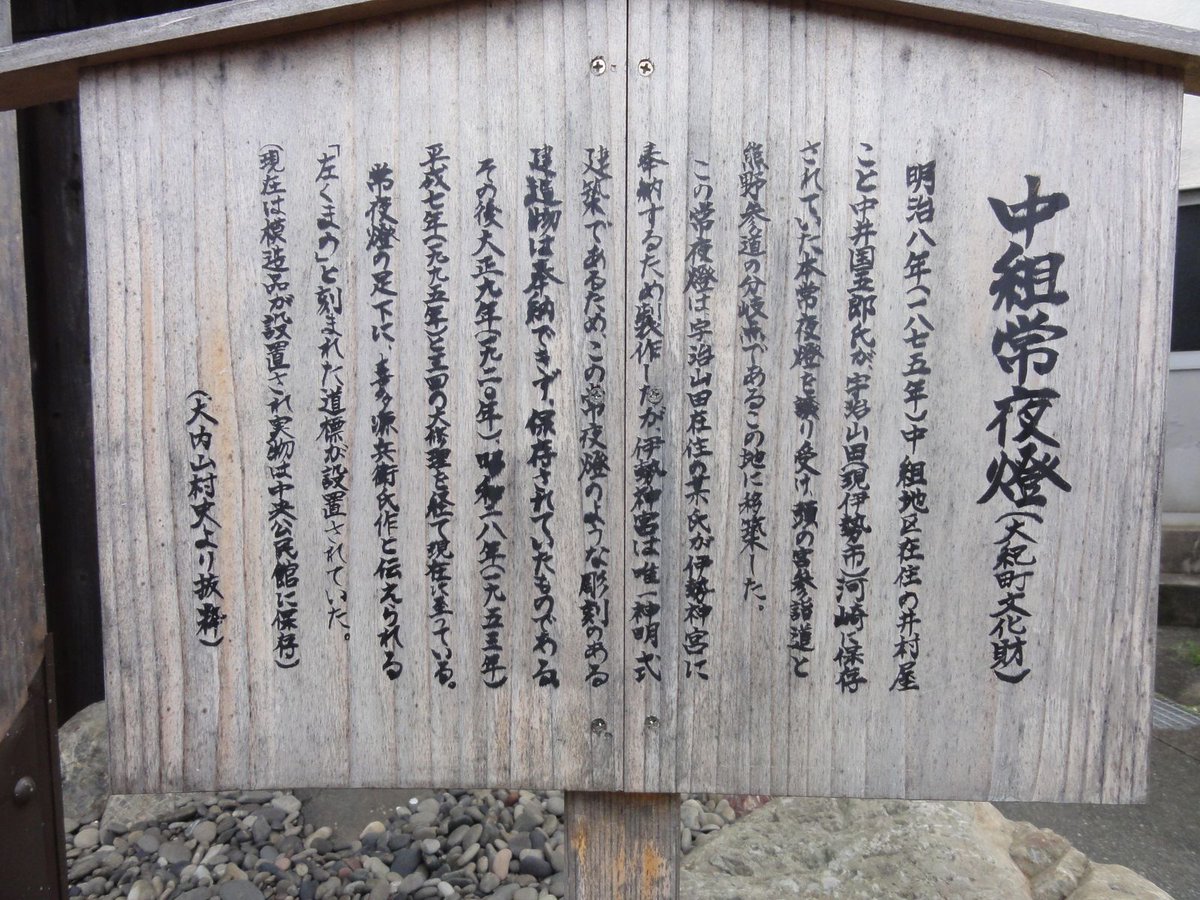 中組常夜燈(大紀町文化財)
明治八年(一八七五年)中組地区在住の井村屋
こと中井国五郎氏が、宇治山田(現伊勢市)河崎に保存
されていた本常夜燈を譲り受け頭の宮参詣道と
熊野参道の分岐点であるこの地に移築した。
この常夜燈は宇治山田在住の某氏が伊勢神宮に
奉納するため製作したが、伊勢神宮は唯一神明式
建築であるため、この常夜燈のような彫刻のある
建造物は奉納できず、保存されていたものである。
その後大正九年(一九二〇年)、昭和二八年(一九五三年)
平成七年(一九九五年)と三回の大修理を経て現在に至っている。
常夜燈の足下に、喜多源兵衛氏作と伝えられる
「左くまの」と刻まれた、道標が設置されていた。
(現在は模造品が設置され実物は中央公民館に保存)
(大内山村史より抜粋)